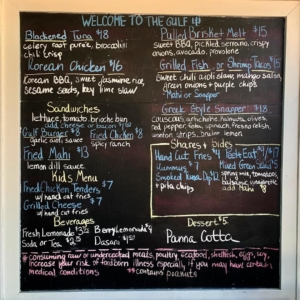 WELCOME TO THE GULF
Blackened Tuna $18
celery root pureé, broccolini
chili crisp
Korean Chicken $16
Korean BBQ, sweet jasmine rice,
sesame seeds, key lime slaw
Sandwiches
lettuce, tomato, brioche bun
add cheese or bacon
Gulf Burger $8
garlic aioli sauce
Fried Chicken $8
spicy ranch
Fried Mahi $13
lemon dill sauce
Kids Menu
Fried Chicken Tenders $7
w/ hand cut fries
Grilled Cheese $7
w/ hand cut fries
Beverages
Fresh Lemonade
Berry Lemonade $4
Soda or Tea
Dasani
Pulled Brisket Melt $15
Sweet BBQ, pickled serrano, crispy
onions, avocado, provolone
Grilled Fish or Shrimp Tacos $15
Sweet chili aioli slaw, mango salsa,
green onions + purple chips
*Mahi or Snapper
Greek Style Snapper $18
couscous, artichoke, hummus, olives,
red pepper, feta, spinach, fresno relish,
wonton strips, braler lemon
Shares + Sides
Hand Cut Fries
Hummus
Smoked Tuna Dip
+ pita chips
Mixed Green Salad
spring mix, tomatoes,
balsamic vinaigrette
add Mahi $8
Dessert $5
Panna Cotta
*consuming raw or undercooked meats, poultry, seafood, shellfish, eggs, may
increase your risk of foodborn illness especially if you may have certain
medical conditions
**contains peanuts